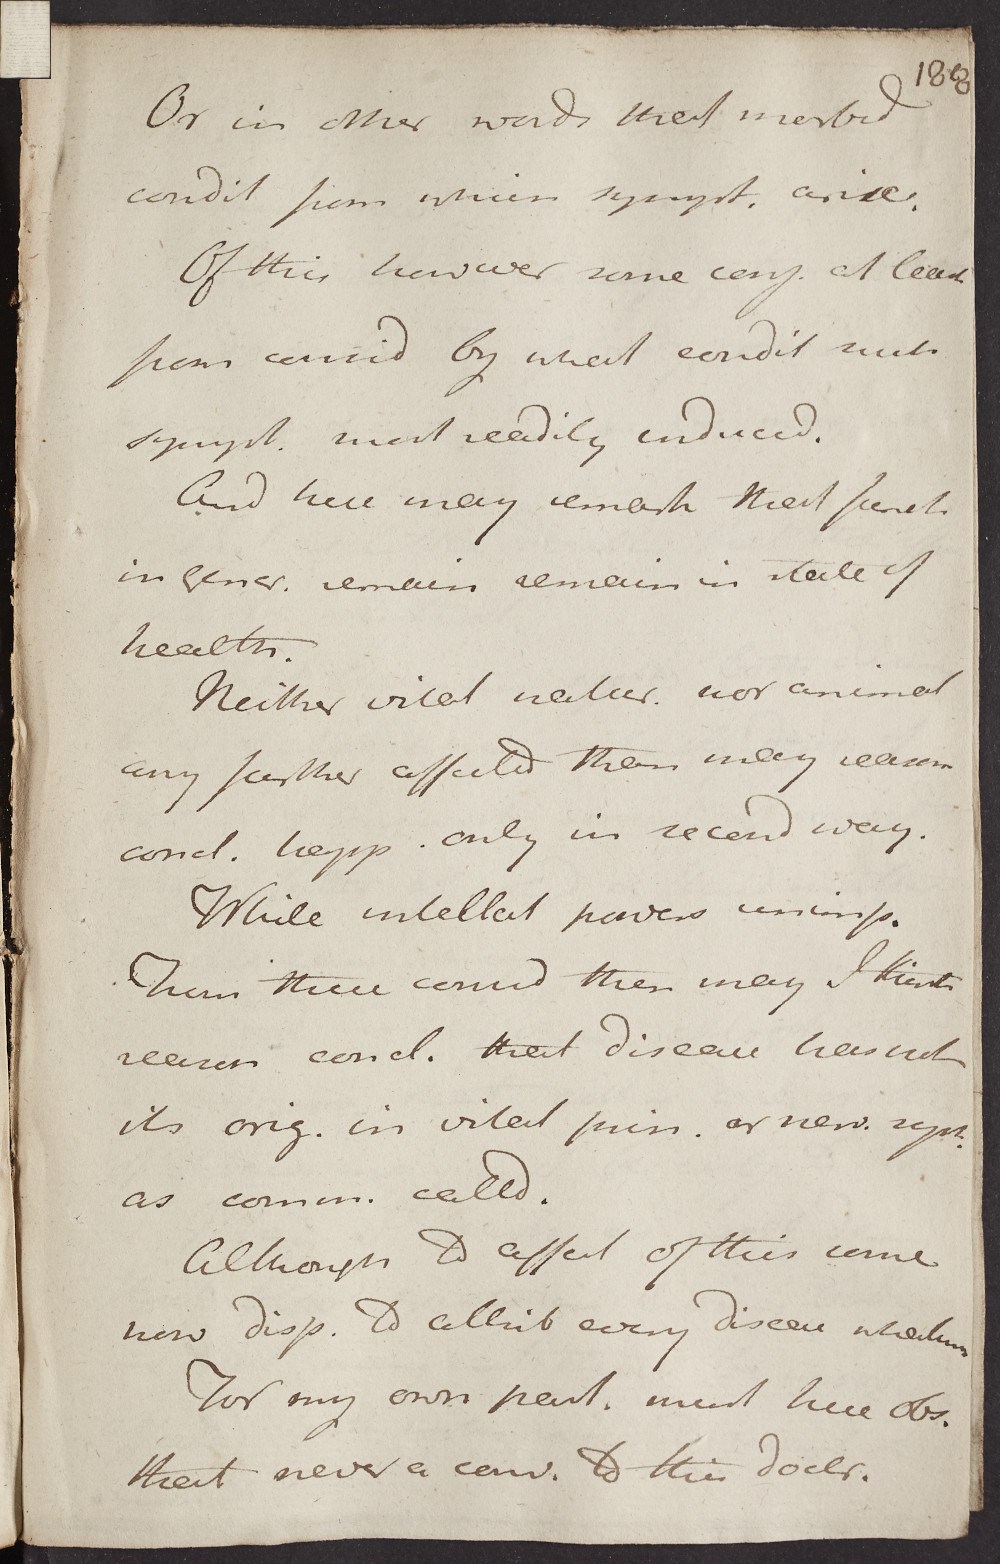 Or in other words that morbid
condit from which sympt. arise.
Of this however some conj. at least
from consid by what condit such
sympt. most readily induced.
And here may remark that funct
in gener. remain remain in state of
health.
Neither vital natur. nor animal
any further affected than may reason
concl. happ. only in second way.
While intellect powers unimp.
From these consid then may I think
reason concl. that disease has not
its orig. in vital prin. or nerv. syst.
as comm. called.
Although to affect of this some
now disp. to attrib every disease whatever
For my own part. must here obs.
that never a conv. to this doctr.